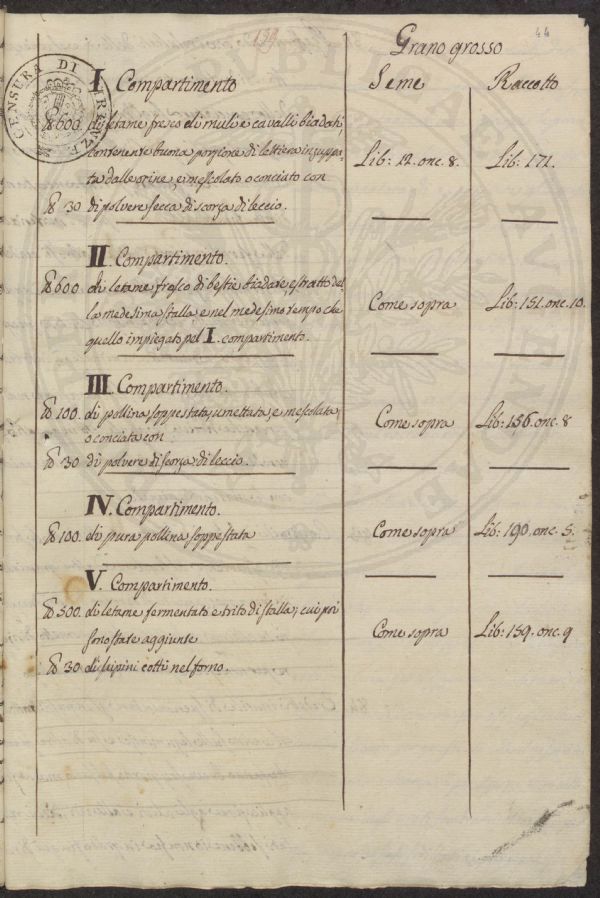 44
139
Grano grosso
Seme Raccolto
CENSURA DI FIRENZE
I Compartimento
℔ 600. di letame fresco di muli e cavalli biadati,
contenente buona porzione di lettiera inzuppa-
ta dalle orine, e mescolato o conciato con
Lib: 12. onc. 8. Lib: 171.
℔ 30 di polvere secca di scorza di leccio.
II Compartimento.
℔ 600 di letame fresco di bestie biadate, estratto del
la medesima stalla, e nel medesimo tempo che
Come sopra Lib: 151. onc. 10.
quello impiegato pel I. compartimento.
III Compartimento.
℔ 100. di pollina soppestata, umettata, e mescolata,
o conciata con
Come sopra Lib: 156. onc. 8
℔ 30 di polvere di scorza di leccio.
IV. Compartimento.
℔ 100. di pura pollina soppestata
Come sopra Lib: 190. onc. 5.
V. Compartimento.
℔ 500. di letame fermentato e trito di stalla, cui poi
sono state aggiunte
Come sopra Lib: 159. onc. 9
℔ 30 di lupini cotti nel forno.